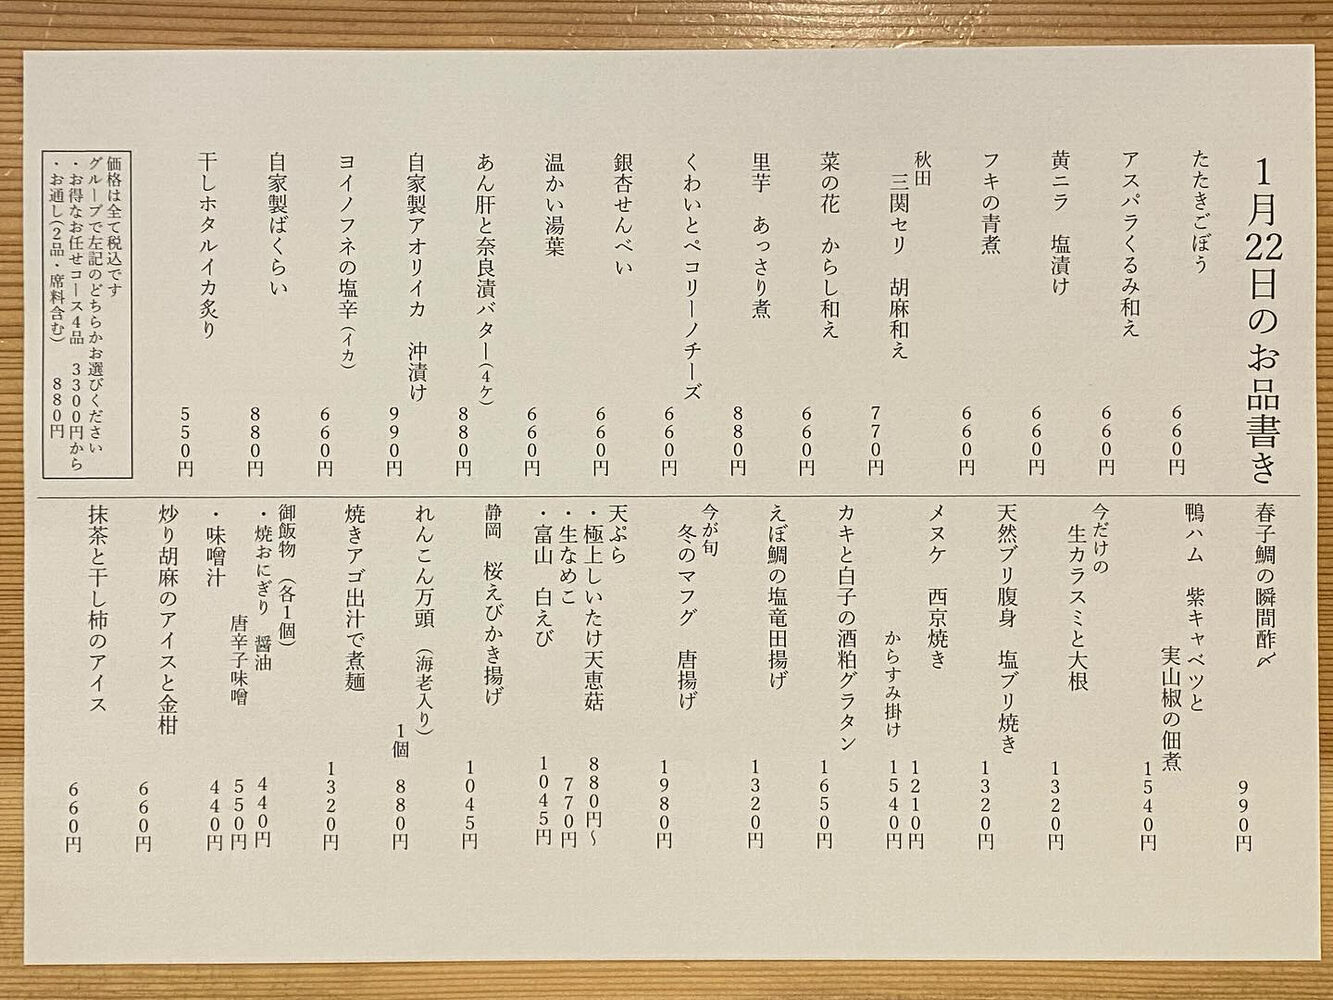 1月22日のお品書き
たたきごぼう
660円
アスパラくるみ和え
660円
黄ニラ 塩漬け
660円
フキの青煮
660円
秋田
三関セリ 胡麻和え
770円
菜の花 からし和え
660円
里芋 あっさり煮
880円
くわいとペコリーノチーズ
660円
銀杏せんべい
660円
温かい湯葉
660円
あん肝と奈良漬バター(4ケ)
880円
自家製アオリイカ 沖漬け
990円
ヨイノフネの塩辛(イカ)
660円
自家製ばくらい
880円
干しホタルイカ炙り
550円
価格は全て税込です
グループで左記のどちらかお選びください
・お得なお任せコース4品 3300円から
・お通し(2品・席料含む) 880円
春子鯛の瞬間酢〆
990円
鴨ハム 紫キャベツと
実山椒の佃煮
1540円
今だけの
生カラスミと大根
1320円
天然ブリ腹身 塩ブリ焼き
1320円
メヌケ 西京焼き
1210円
からすみ掛け
1540円
カキと白子の酒粕グラタン
1650円
えぼ鯛の塩竜田揚げ
1320円
今が旬
冬のマフグ 唐揚げ
1980円
天ぷら
・極上しいたけ天恵菇
880円~
・生なめこ
770円
・富山 白えび
1045円
静岡 桜えびかき揚げ
1045円
れんこん万頭 (海老入り)
1個 880円
焼きアゴ出汁で煮麺
1320円
御飯物 (各1個)
・焼おにぎり 醤油
440円
唐辛子味噌
550円
・味噌汁
440円
炒り胡麻のアイスと金柑
660円
抹茶と干し柿のアイス
660円